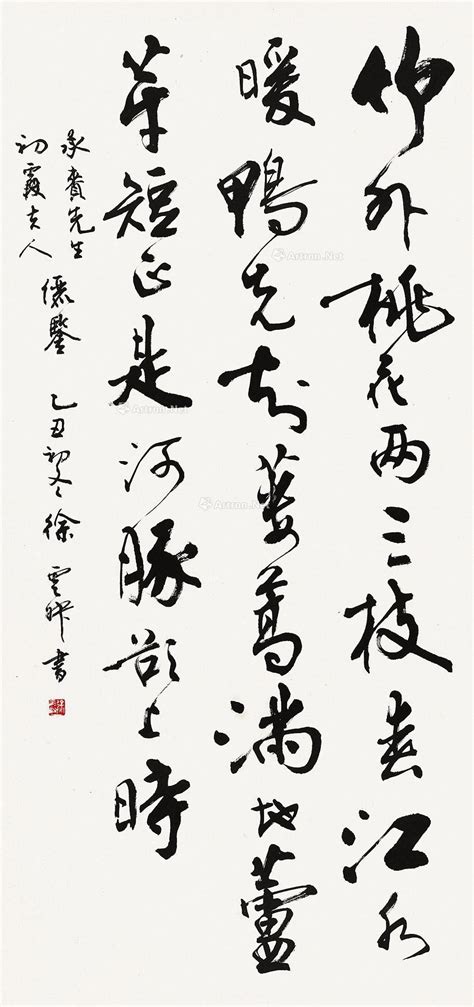 竹外桃花两三枝春江水
暖鴨先知蔞蒿満地蘆
芽短正是河豚欲上時
承賚先生
初霞夫人
儷鑒 乙丑初冬 徐雲叔書
Artron.Net